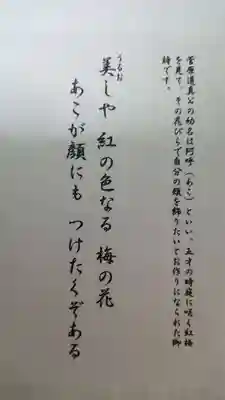 菅原道真公の幼名は阿呼(あこ)といい、五才の時庭に咲く紅梅
を見て、その花びらで自分の頬を飾りたいとお作りになられた御
詩です。
うるお
美しや 紅の色なる 梅の花
あこが顔にも つけたくぞある